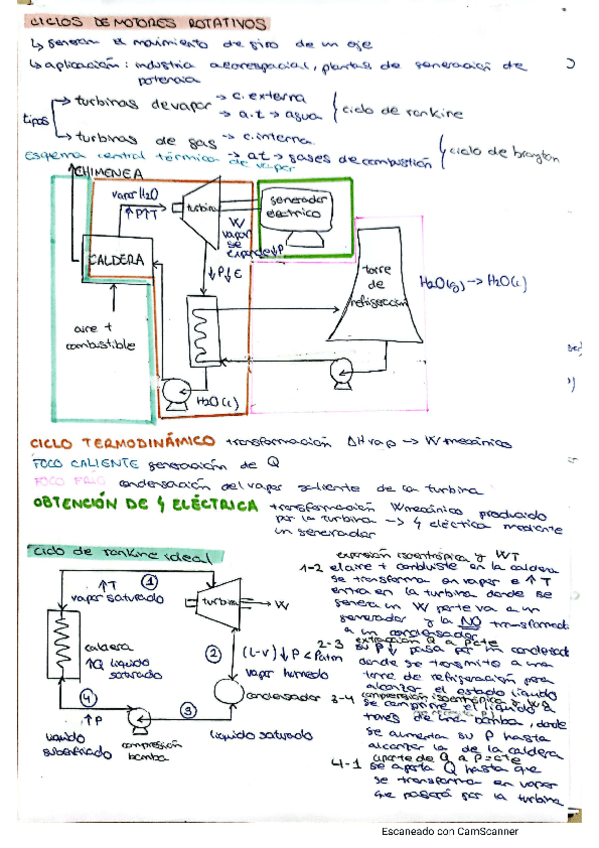 CICLOS DE MOTORES ROTATIVOS
↳ generan el movimiento de giro de un eje
↳ aplicación: industria aeroespacial, plantas de generación de
potencia
tipos
→ turbinas de vapor → c. externa
→ a.t → agua
ciclo de rankine
→ turbinas de gas → c. interna
→ a.t → gases de combustión
ciclo de brayton
esquema central térmica de vapor
CHIMENEA
vapor H2O
↑P↑T
turbina
generador
electrico
W
vapor
se
expande ↓P
CALDERA
↓P↓E
torre
de
refrigeración
H2O(g) → H2O(l)
aire +
combustible
H2O(l)
CICLO TERMODINÁMICO transformación ΔHvap → W mecánico
FOCO CALIENTE generación de Q
FOCO FRIO condensación del vapor saliente de la turbina
OBTENCIÓN DE ϟ ELÉCTRICA transformación Wmecánico producido
por la turbina → ϟ eléctrica mediante
un generador
ciclo de rankine ideal
①
↑T
vapor saturado
turbina
→ W
caldera
↑Q líquido
saturado
②
(L-V) ↓P<Patm
vapor humedo
condensador
④
↑P
③
líquido
subenfriado
compresión
bomba
líquido saturado
expansión isoentrópica y WT
1-2 el aire + en la caldera
se transforma en vapor e ↑T
entra en la turbina donde se
genera un W parte va a un
generador y la NO transformada
a un condensador
2-3 extracción Q a P cte
su P↓ pasa por un condensador
donde se transmite a una
torre de refrigeración para
alcanzar el estado líquido
3-4 compresión isoentrópica y
se comprime el líquido a
traves de una bomba, donde
se aumenta su P hasta
alcanzar la de la caldera
4-1 aporte de Q a P=cte
se aporta Q hasta que
se transforma en vapor
que pasará por la turbina
Escaneado con CamScanner